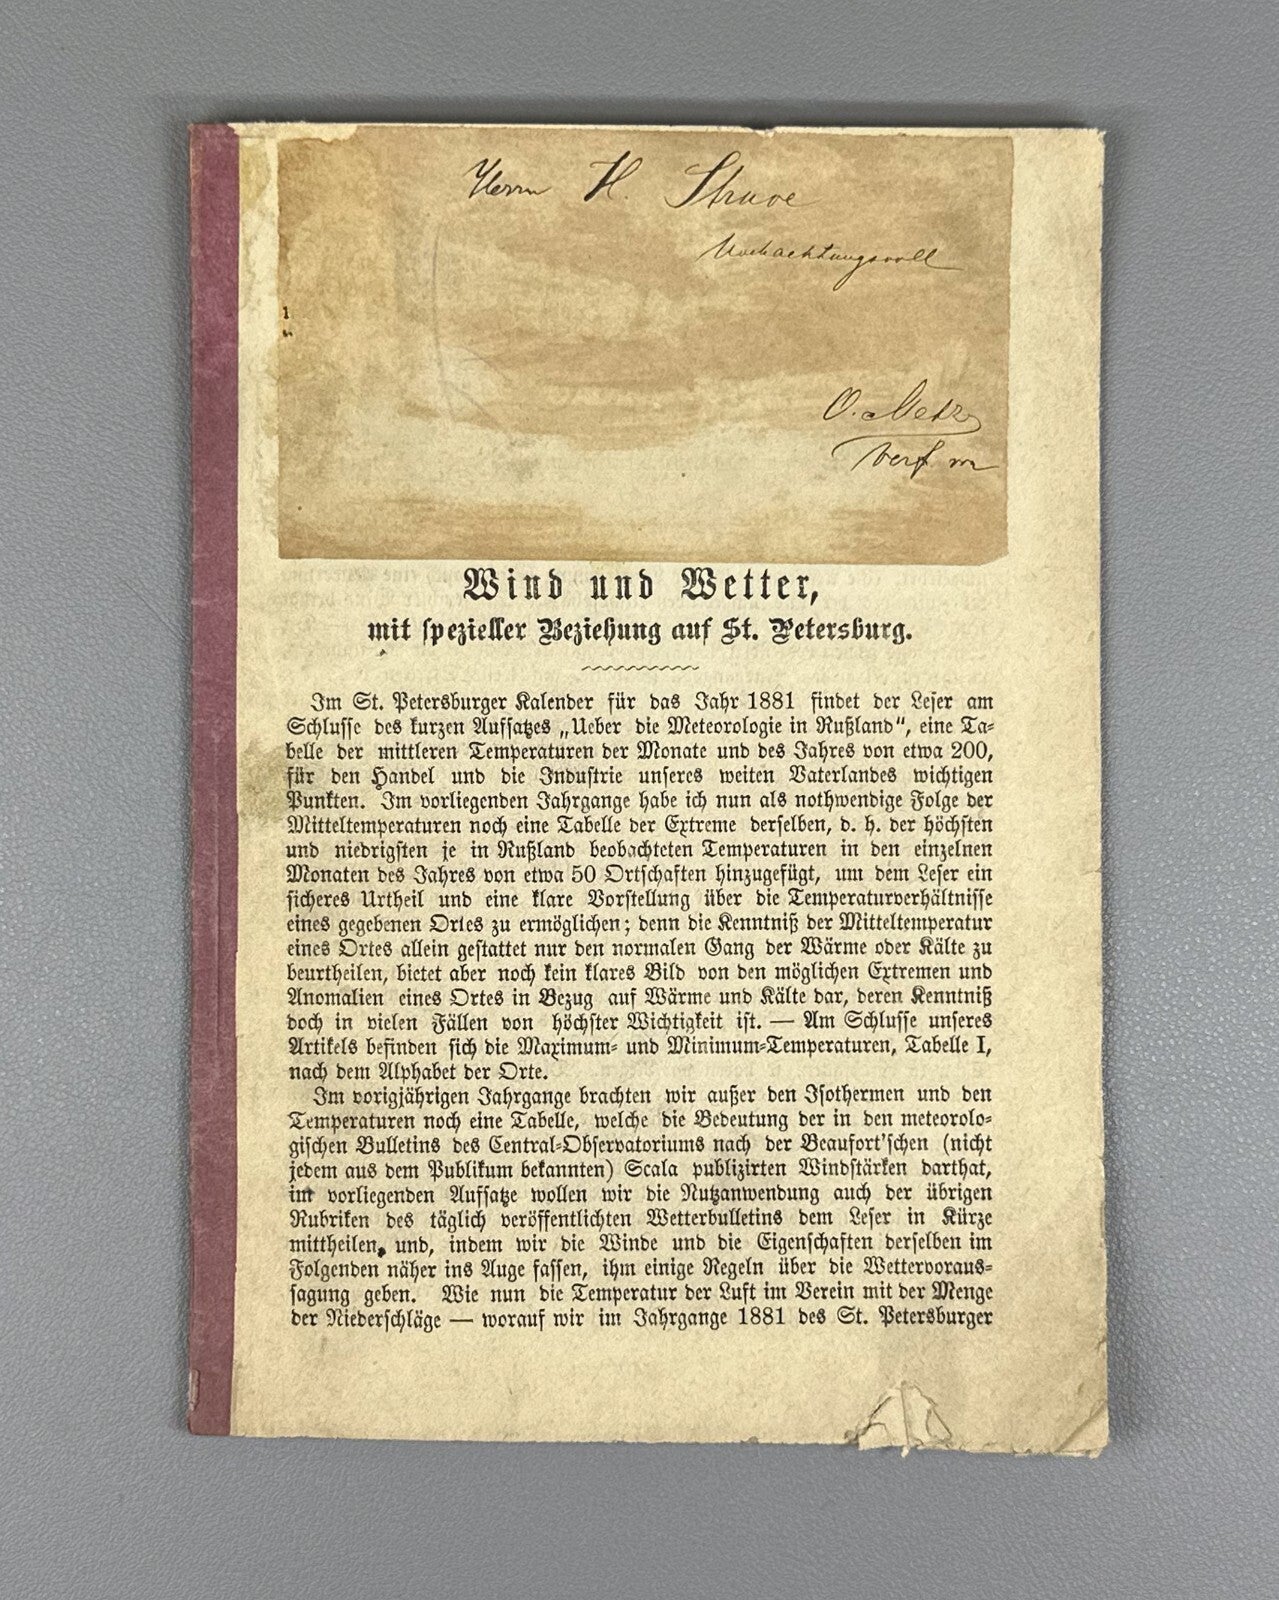 Herrn H. Struve
Hochachtungsvoll
O. Metz
Verf
Wind und Wetter,
mit spezieller Beziehung auf St. Petersburg.
Im St. Petersburger Kalender für das Jahr 1881 findet der Leser am
Schlusse des kurzen Aufsatzes „Ueber die Meteorologie in Rußland“, eine Ta-
belle der mittleren Temperaturen der Monate und des Jahres von etwa 200,
für den Handel und die Industrie unseres weiten Vaterlandes wichtigen
Punkten. Im vorliegenden Jahrgange habe ich nun als nothwendige Folge der
Mitteltemperaturen noch eine Tabelle der Extreme derselben, d. h. der höchsten
und niedrigsten je in Rußland beobachteten Temperaturen in den einzelnen
Monaten des Jahres von etwa 50 Ortschaften hinzugefügt, um dem Leser ein
sicheres Urtheil und eine klare Vorstellung über die Temperaturverhältnisse
eines gegebenen Ortes zu ermöglichen; denn die Kenntniß der Mitteltemperatur
eines Ortes allein gestattet nur den normalen Gang der Wärme oder Kälte zu
beurtheilen, bietet aber noch kein klares Bild von den möglichen Extremen und
Anomalien eines Ortes in Bezug auf Wärme und Kälte dar, deren Kenntniß
doch in vielen Fällen von höchster Wichtigkeit ist. — Am Schlusse unseres
Artikels befinden sich die Maximum- und Minimum-Temperaturen, Tabelle I,
nach dem Alphabet der Orte.
Im vorigjährigen Jahrgange brachten wir außer den Isothermen und den
Temperaturen noch eine Tabelle, welche die Bedeutung der in den meteorolo-
gischen Bulletins des Central-Observatoriums nach der Beaufort'schen (nicht
jedem aus dem Publikum bekannten) Scala publizirten Windstärken darthat,
im vorliegenden Aufsatze wollen wir die Nutzanwendung auch der übrigen
Rubriken des täglich veröffentlichten Wetterbulletins dem Leser in Kürze
mittheilen, und, indem wir die Winde und die Eigenschaften derselben im
Folgenden näher ins Auge fassen, ihm einige Regeln über die Wettervoraus-
sagung geben. Wie nun die Temperatur der Luft im Verein mit der Menge
der Niederschläge — worauf wir im Jahrgange 1881 des St. Petersburger